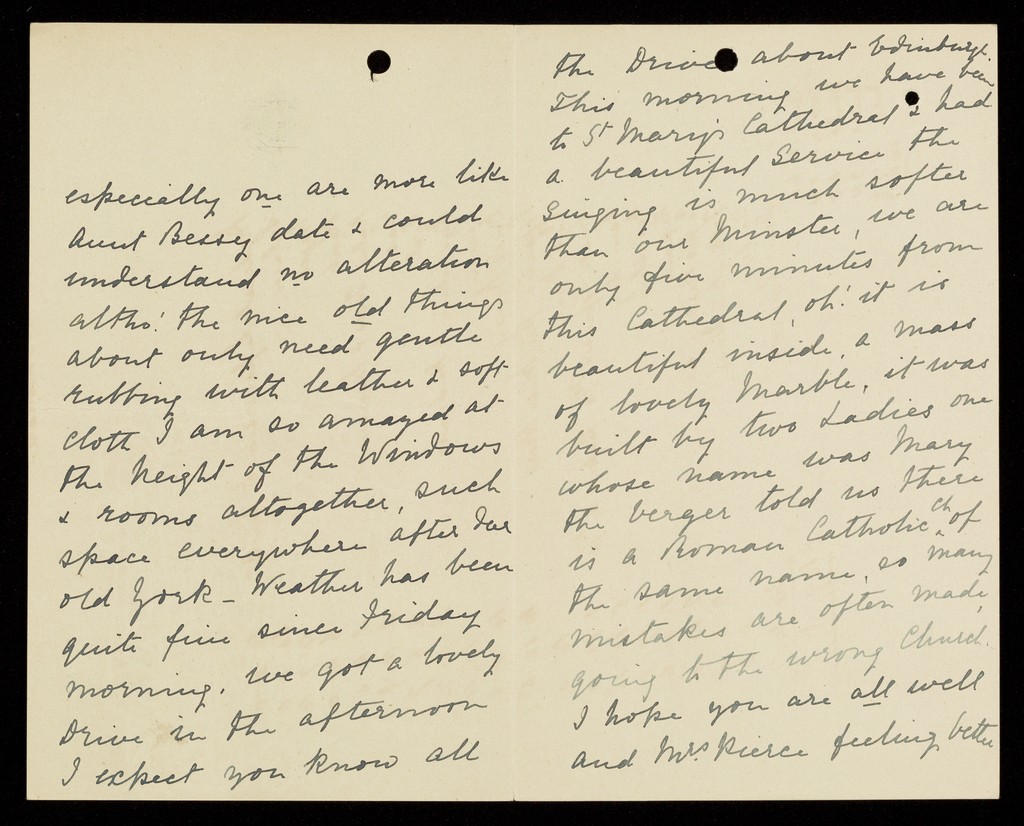 especially one are more like
Aunt Bessy date & could
understand no alteration
altho'. the nice old things
about only need gentle
rubbing with leather & soft
cloth I am so amazed at
the height of the Windows
& rooms altogether, such
space everywhere after dear
old York – Weather has been
quite fine since Friday
morning. we got a lovely
Drive in the afternoon
I expect you know all
the Drives about Edinburgh.
This morning we have been
to St Mary's Cathedral & had
a beautiful Service the
Singing is much softer
than our Minster, we are
only five minutes from
this Cathedral, oh! it is
beautiful inside, a mass
of lovely Marble, it was
built by two Ladies one
whose name was Mary
the verger told us there
is a Roman Catholic ch of
the same name, so many
mistakes are often made,
going to the wrong Church.
I hope you are all well
and Mrs. Pierce feeling better